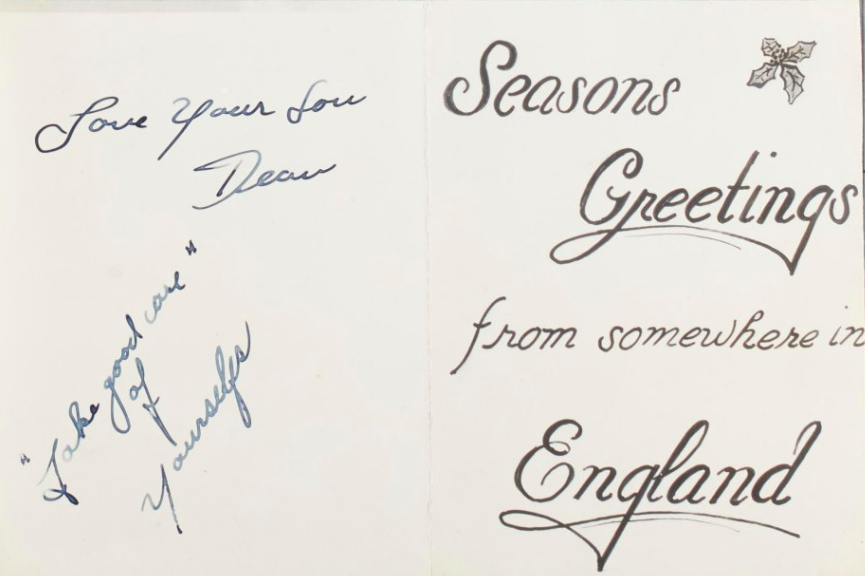 Love Your Son
Dean
"Take good care"
of
Yourselfs
Seasons
Greetings
from somewhere in
England